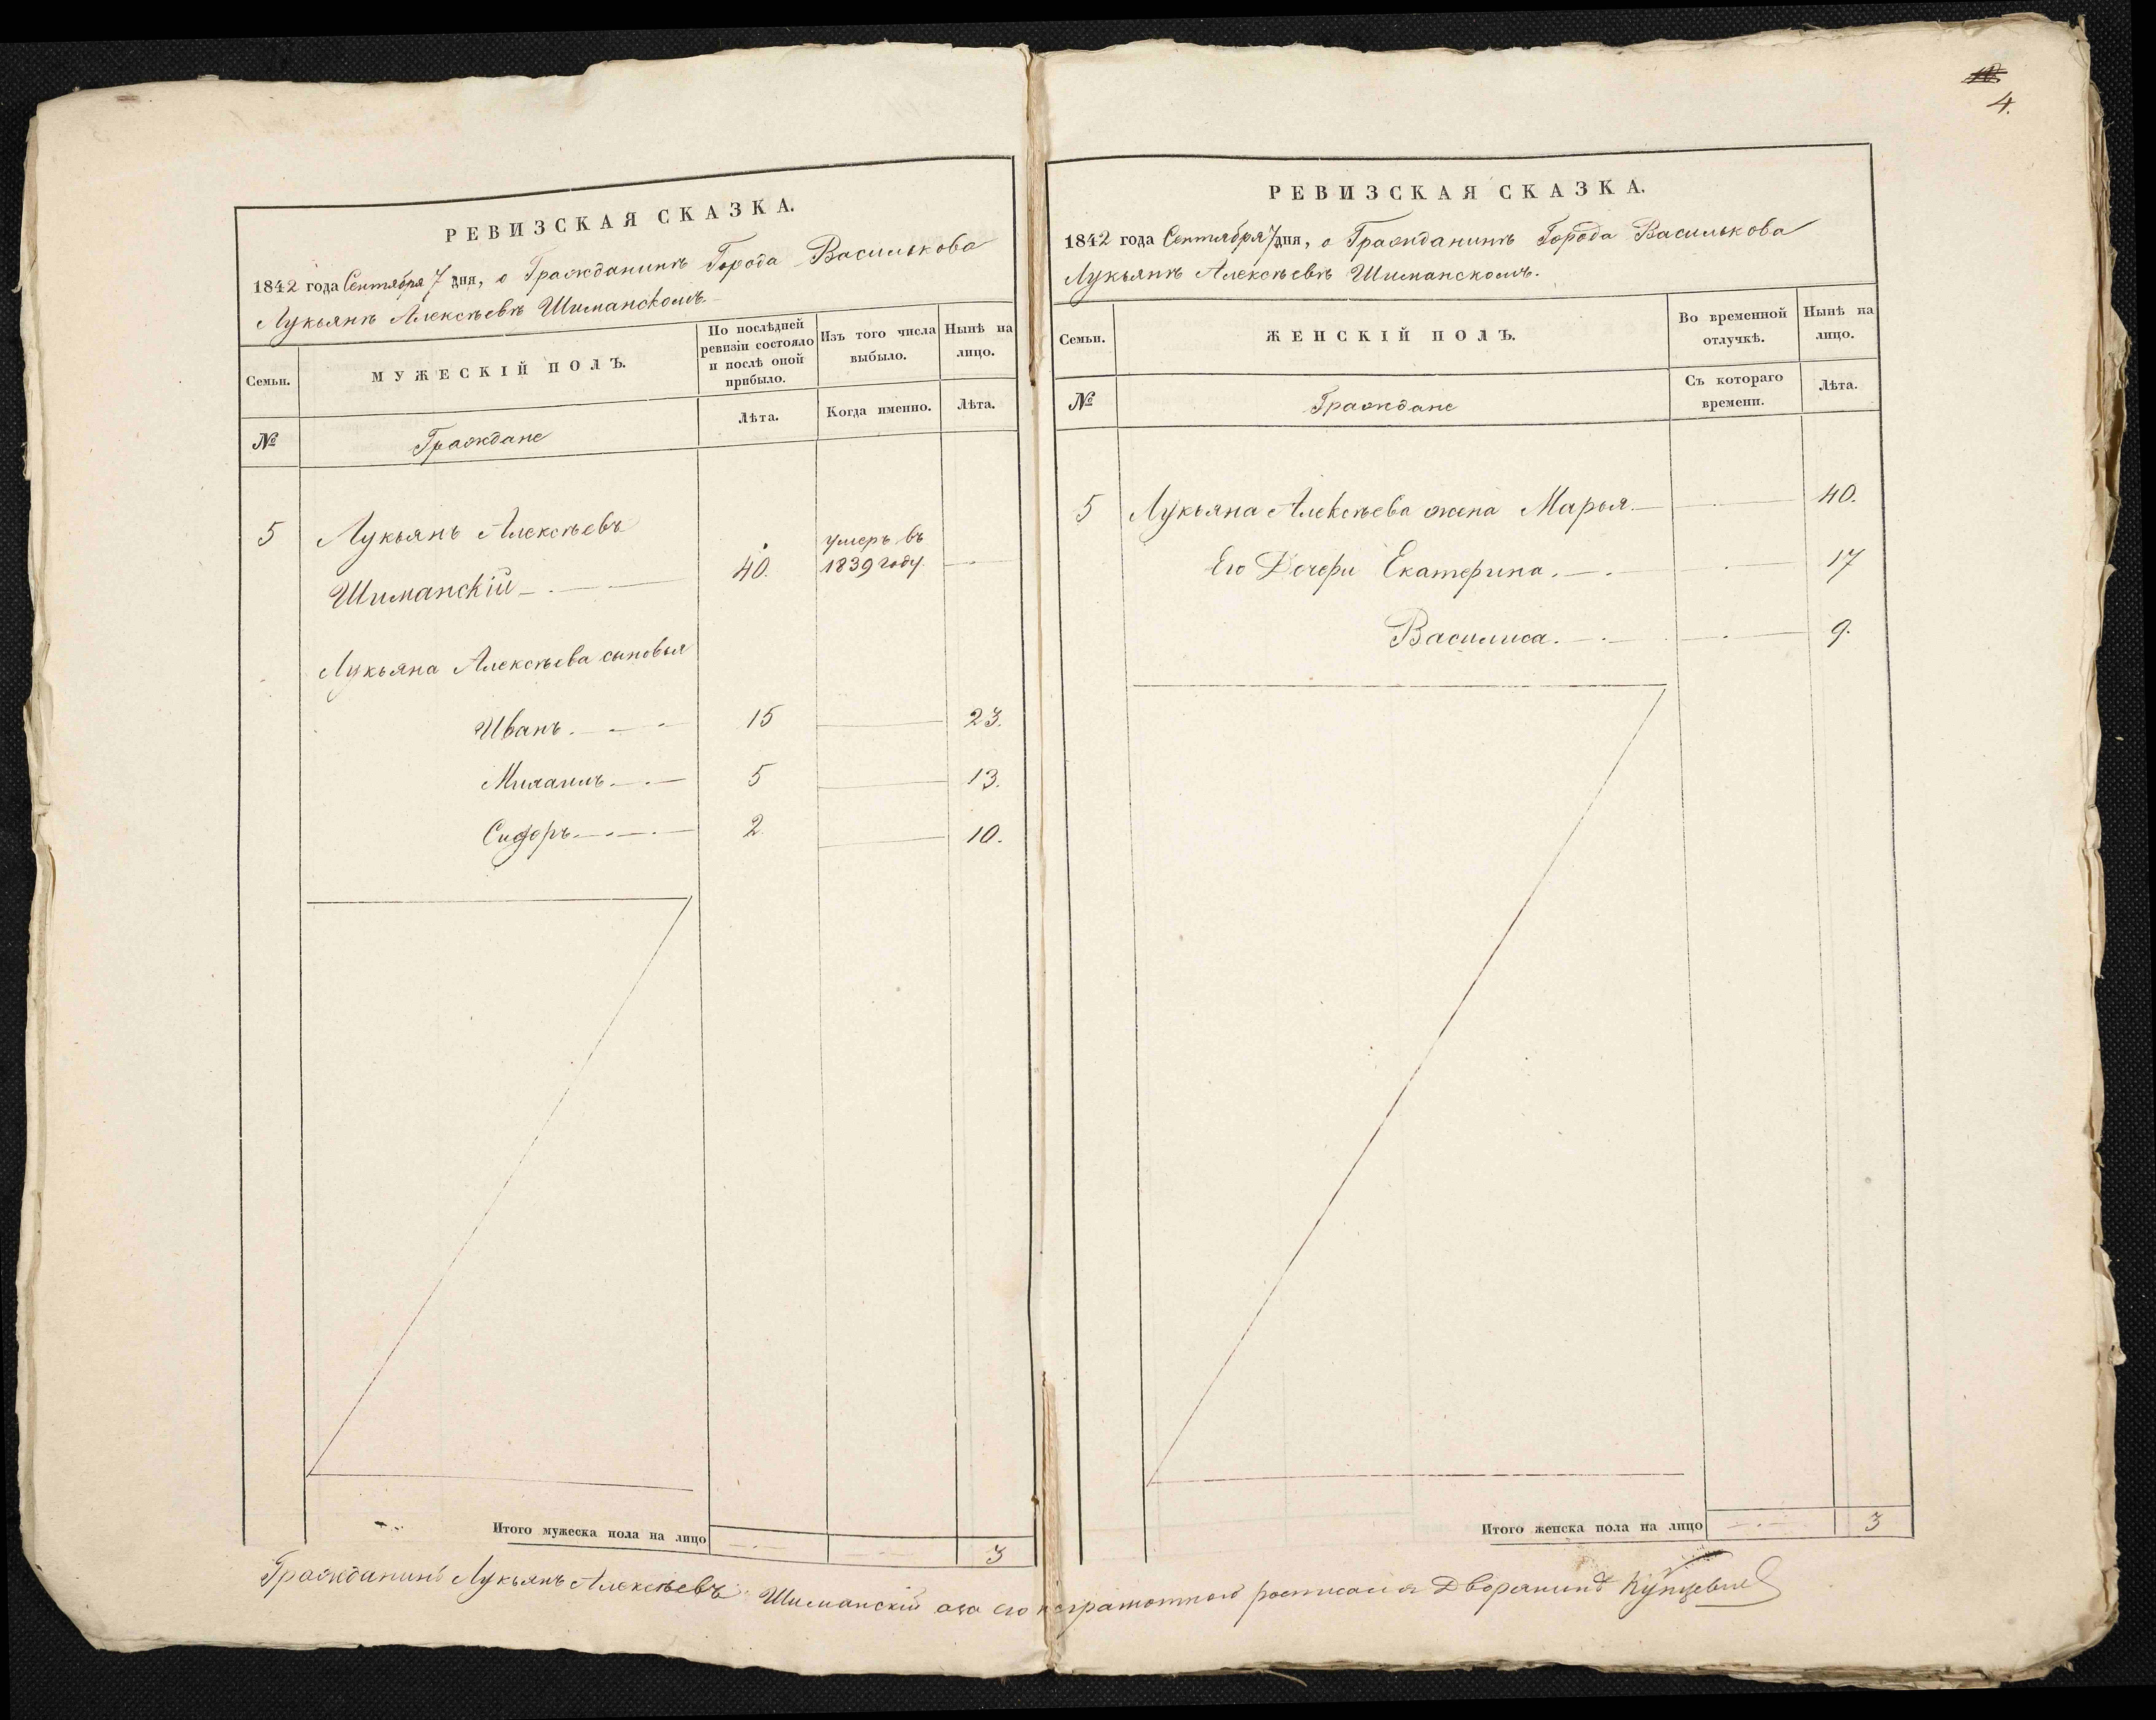 4.
РЕВИЗСКАЯ СКАЗКА.
1842 года Сентября 7 дня, о Гражданинѣ Города Василькова
Лукьянѣ Алексѣевѣ Шиманскомъ.
Семьи.
МУЖЕСКІЙ ПОЛЪ.
По послѣдней
ревизіи состояло
и послѣ оной
прибыло.
Изъ того числа
выбыло.
Нынѣ на
лицо.
№
Граждане
Лѣта.
Когда именно.
Лѣта.
5 Лукьянъ Алексѣевъ
Шиманскій 40. умеръ въ
1839 году.
Лукьяна Алексѣева сыновья
Иванъ. 15 23.
Михаилъ. 5 13.
Сидоръ. 2. 10.
Итого мужеска пола на лицо 3
РЕВИЗСКАЯ СКАЗКА.
1842 года Сентября 7 дня, о Гражданинѣ Города Василькова
Лукьянѣ Алексѣевѣ Шиманскомъ.
Семьи.
ЖЕНСКІЙ ПОЛЪ.
Во временной
отлучкѣ.
Нынѣ на
лицо.
№
Граждане
Съ котораго
времени.
Лѣта.
5 Лукьяна Алексѣева жена Марья. 40.
Его Дочери Екатерина. 17
Василиса. 9.
Итого женска пола на лицо 3
Гражданинъ Лукьянъ Алексѣевъ Шиманскій аза его неграмотного росписался Дворянинъ